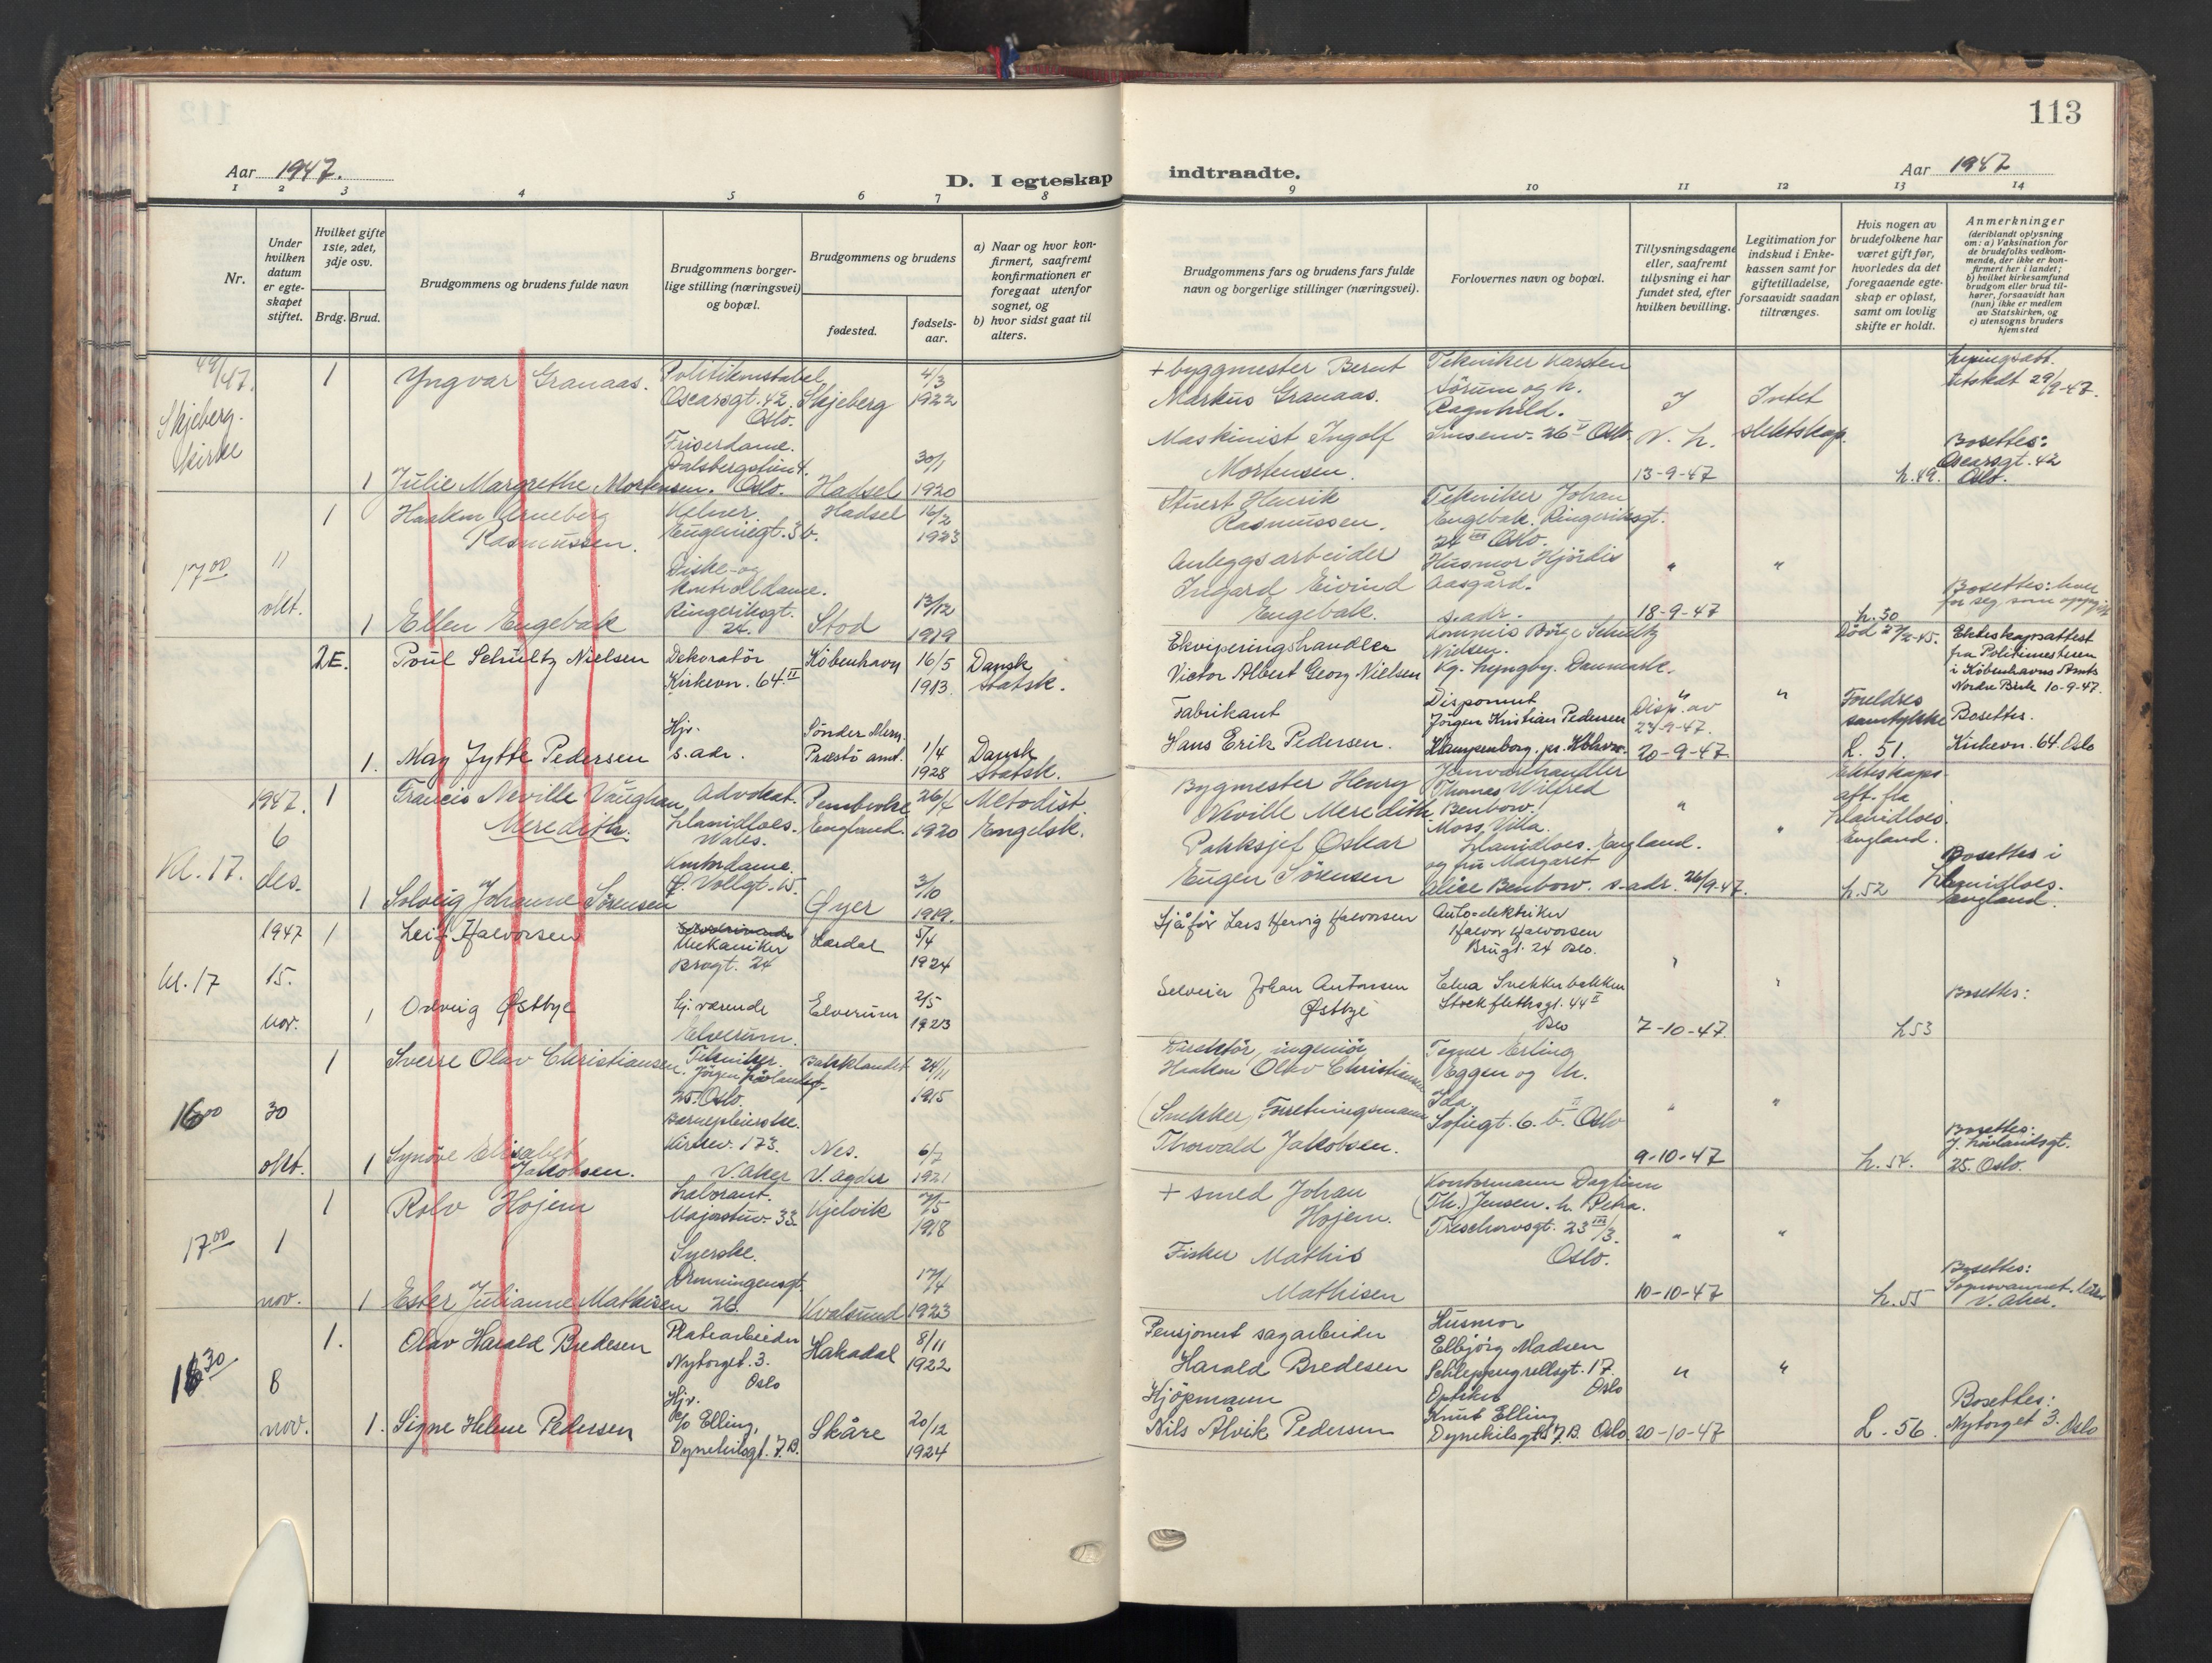 113
Aar 1947.
D. I egteskap indtraadte.
Aar 1947
1 2 3 4 5 6 7 8 9 10 11 12 13 14
Nr.
Under hvilken datum er egte-skapet stiftet.
Hvilket gifte 1ste, 2det, 3dje osv.
Brdg. Brud.
Brudgommens og brudens fulde navn
Brudgommens borger-lige stilling (næringsvei) og bopæl.
Brudgommens og brudens
fødested.
fødsels-aar.
a) Naar og hvor kon-firmert, saafremt konfirmationen er foregaat utenfor sognet, og
b) hvor sidst gaat til alters.
Brudgommens fars og brudens fars fulde navn og borgerlige stillinger (næringsvei).
Forlovernes navn og bopæl.
Tillysningsdagene eller, saafremt tillysning ei har fundet sted, efter hvilken bevilling.
Legitimation for indskud i Enke-kassen samt for giftetilladelse, forsaavidt saadan tiltrænges.
Hvis nogen av brudefolkene har været gift før, hvorledes da det foregaaende egte-skap er opløst, samt om lovlig skifte er holdt.
Anmerkninger
(deriblandt oplysning om: a) Vaksination for de brudefolks vedkom-mende, der ikke er kon-firmert her i landet; b) hvilket kirkesamfund brudgom eller brud til-hører, forsaavidt han (hun) ikke er medlem av Statskirken, og c) utensogns bruders hjemsted
Skjeberg
kirke
1
Yngvar Granaas.
Politikonstabel
Oscarsgt. 42
Oslo.
Skjeberg
4/3
1922
+ byggmester Bernt
Markus Granaas.
Tekniker Karsten
Sørum og h.
Ragnhild.
Intet
slektskap
utstedt 29/9-47.
1
Julie Margrethe Mortensen.
Friserdame.
Oslo.
Hadsel
30/1
1920
Maskinist Ingolf
Mortensen.
Oslo.
13-9-47
L. 49.
Bosettes:
Oscarsgt. 42
Oslo.
17.00
11
okt.
1
Haakon Arneberg
Rasmussen.
Kelner.
Eugeniegt. 3 b.
Hadsel
16/2
1923
Stuert Henrik
Rasmussen.
Tekniker Johan
Engebak. Ringeriksgt.
24 III Oslo.
1
Ellen Engebak
Diske- og
kontrolldame.
Ringeriksgt.
24.
Stod
13/12
1919
Anleggsarbeider
Ingard Eivind
Engebak.
Husmor Hjördis
Aasgård.
s. adr.
18-9-47
L. 50
Bosettes: hver
for seg som oppgitt
2. E.
Poul Schultz Nielsen
Dekoratör
Kirkevn. 64 II
København
16/5
1913.
Dansk
Statsk.
Ekviperingshandler
Victor Albert Georg Nielsen
Kommis Börge Schultz
Nielsen.
Kg. Lyngby. Danmark.
Ekteskapsattest
fra Politimesteren
i Københavns Amts
Nordre Birk 10-9-47.
1.
May Jytte Pedersen
Hjv.
s. adr.
Sönder Mern.
Præstö amt.
1/4
1928
Dansk
Statsk.
Fabrikant
Hans Erik Pedersen.
Disponent
Jörgen Kristian Pedersen
Klampenborg. pr. Kbhvn.
Disp. av
23-9-47.
20-9-47
Foreldres
samtykke
L. 51.
Bosettes.
Kirkevn. 64. Oslo
Kl. 17.
1947.
6
des.
1
Francis Neville Vaughan
Meredith.
Advokat.
Llanidloes.
Wales.
Pembroke
England.
26/4
1920
Metodist
Engelsk.
Bygmester Henry
Neville Meredith.
Jernvarehandler
Thomas Wilfred
Benbow.
Moss Villa.
Llanidloes. England.
Ekteskaps-
att. fra
Llanidloes.
England.
1
Solveig Johanne Sörensen
Kontordame.
Øyer
3/10
1919.
Pakksjef Oskar
Eugen Sörensen
og fru Margaret
Alice Benbow. s. adr.
26/9-47.
L. 52
Bosettes i
Llanidloes.
England.
Kl. 17
1947
15.
nov.
1
Leif Halvorsen
Mekaniker
Brugt. 24
Lærdal
5/4
1924
Sjåför Lars Hervig Halvorsen
Auto-elektriker
Halvor Halvorsen
Brugt. 24 Oslo.
1
Oddveig Østbye
hj. værende
Elverum.
Elverum
2/5
1923
Selveier Johan Antonsen
Østbye
Elna Snekkerbakken
Stockflethsgt. 44 II
Oslo
7-10-47.
L 53
Bosettes:
16.00
30
okt.
1
Sverre Olav Christiansen.
Tekniker.
Jörgen Lövlandsgt.
25. Oslo.
Bakklandet
24/11
1915
Direktör, ingeniör
Haakon Olav Christiansen
Tegner Erling
Eggen og h.
Ida
Sofiegt. 6. b. II Oslo
1
Synöve Elisabet
Jakobsen.
Barnepleierske.
Kirkev. 173.
V. Aker
Nes.
V. Agder
6/7
1921
(Snekker) Forretningsmann
Thorvald Jakobsen.
9-10-47
L. 54.
Bosettes:
J. Lövlandsgt.
25. Oslo.
17.00
1
nov.
1
Rolv Hojem
Laborant.
Majorstuv. 33.
Kjelvik
7/5
1918
+ smed Johan
Hojem.
Kontormann Dagfinn
(Th.) Jensen. h. Petra.
Treschowsgt. 23 III/3.
Oslo.
1
Ester Julianne Mathisen
Syerske.
Dronningensgt.
26
Kvalsund
17/4
1923
Fisker Mathis
Mathisen
10-10-47
L. 55
Bosettes:
V. Aker.
16.30
8
nov.
1.
Olav Harald Bredesen
Platearbeider
Nytorget. 3.
Oslo
Hakadal
8/11
1922
Pensjonert sagarbeider
Harald Bredesen
Husmor
Elbjörg Madsen
Schleppegrellsgt. 17.
Oslo
1.
Signe Helene Pedersen
Hjv.
c/o Elling,
Dynekilsgt. 7. B.
Skåre
20/12
1924
Kjöpmann
Nils Alvik Pedersen
Optiker
Knut Elling
Dynekilsgt. 7. B. Oslo
20-10-47
L. 56.
Bosettes:
Nytorget 3. Oslo